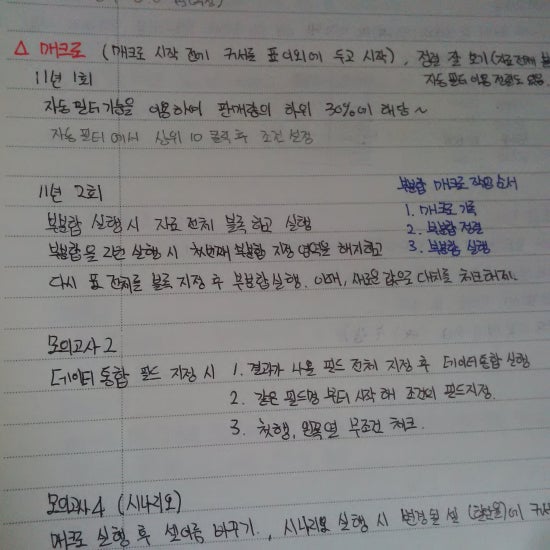 △ 매크로 (매크로 시작 전에 커서를 표 이외에 두고 시작), 정렬 잘 보기 (자료 전체 블
11년 1회 자동필터 이용 전료도 있음.
자동필터기능을 이용하여 판매량의 하위 30%에 해당 ~
자동필터에서 상위 10 클릭 후 조건 설정
11년 2회
부분합 매크로 작성 순서
부분합 실행 시 자료 전체 블록 하고 실행
1. 매크로 기록
2. 부분합 정렬
부분합을 2번 실행 시 첫번째 부분합 지정 영역을 해지하고
3. 부분합 실행
다시 표 전체를 블록 지정 후 부분합 실행. 이때, 새로운 값으로 대치를 체크해제.
모의고사 2
데이터 통합 필드 지정 시 1. 결과가 나올 필드 전체 지정 후 데이터 통합 실행
2. 같은 필드명 부터 시작 해 조건의 필드지정.
3. 첫행, 왼쪽열 무조건 체크.
모의고사 4 (시나리오)
매크로 실행 후 셀이름 바꾸기. , 시나리오 실행 시 변경될 셀 (할인율)에 커서